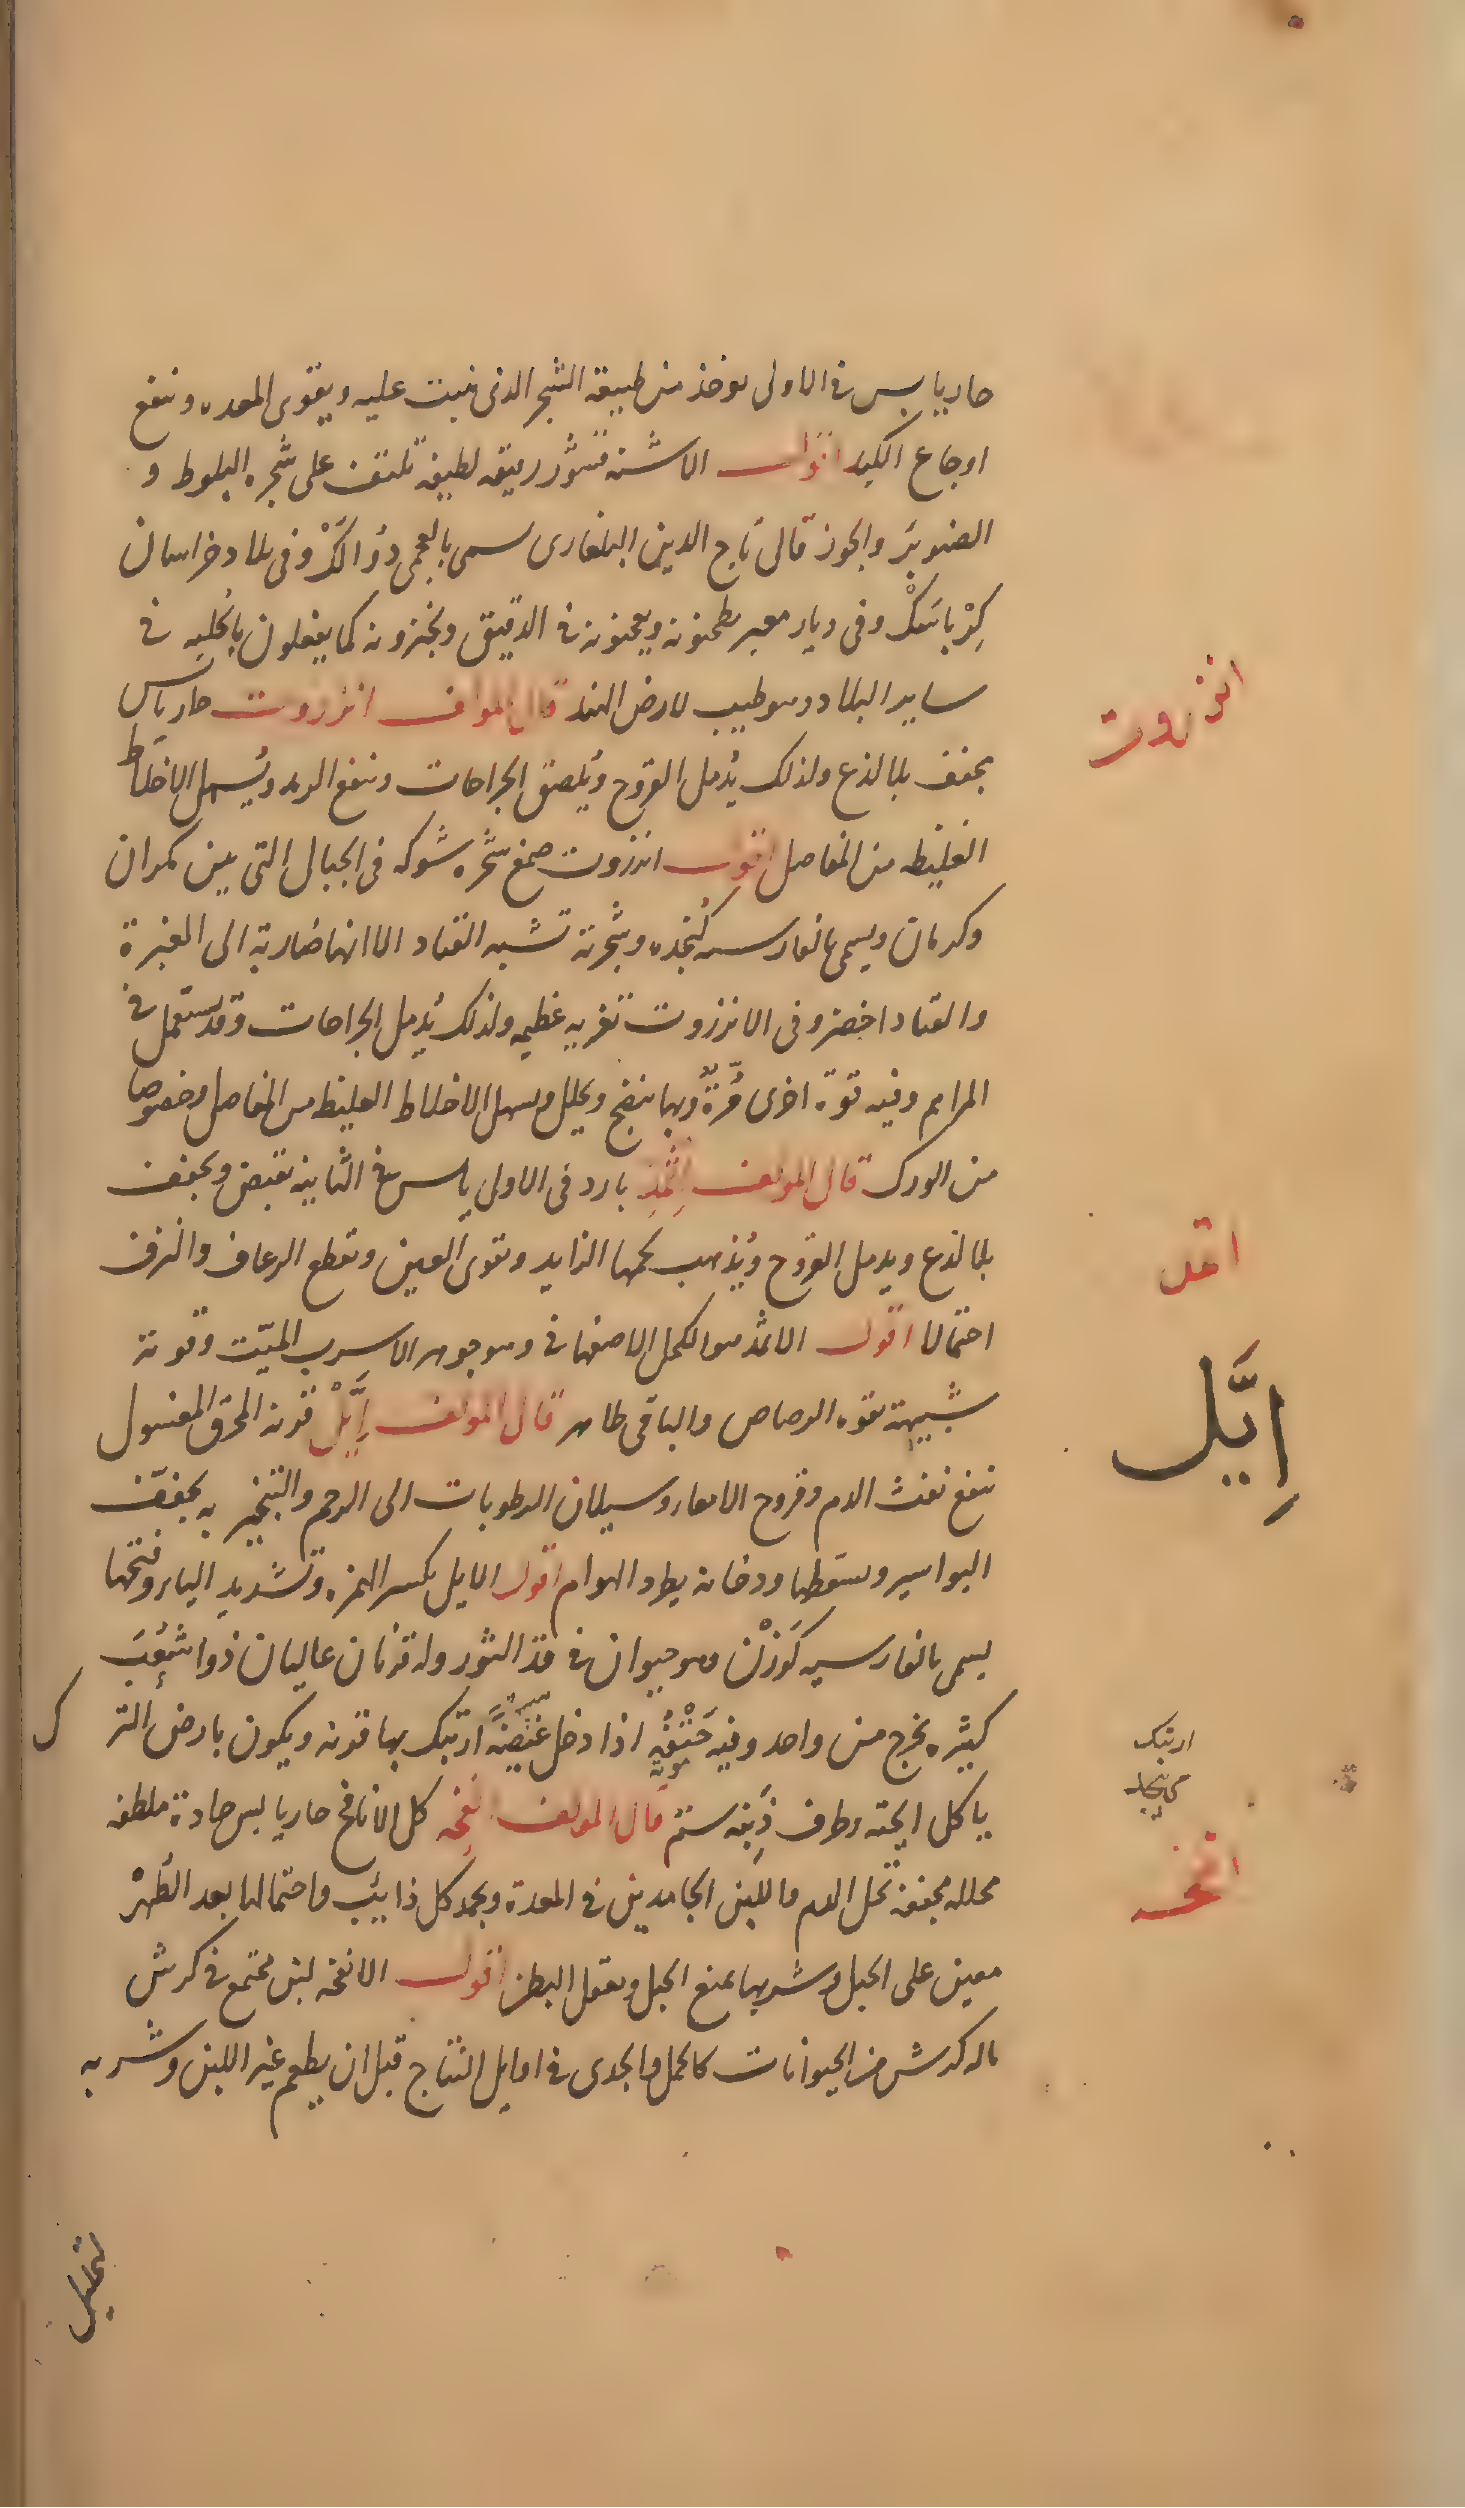 حار يابس فى الاولى يوخذ من طبيعة الشجر الذى ينبت عليه ويقوى المعده وينفع
اوجاع الكبد اقول الاشنه قشور رقيقه لطيفه تلتف على شجره البلوط و
الصنوبر والجوز قال تاج الدين البلغارى يسمى بالعجمى دُوَالَكْ وفى بلاد خراسان
كِرْبَاسَكْ وفى ديار مصر يطحنونه ويعجنونه فى الدقيق ويخبزونه كما يفعلون بالحلبه فى
ساير البلاد وهو طيب لارض الهند قال المولف انزروت حار يابس
يجفف بلا لذع ولذلك يُدمل القروح ويُلصق الجراحات وينفع الرمد ويُسهل الاخلاط
الغليظه من المفاصل اقول انزروت صمغ شجره شوكه فى الجبال التى بين مكران
وكرمان ويسمى بالفارسيه كُنجُده وشجرته تشبه القتاد الا انها ضاربة الى الغبرة
والقتاد اخضر وفى الانزروت تغريه عظيمه ولذلك يُدمل الجراحات وقد يستعمل فى
المراهم وفيه قوّة اخرى مُرّةٌ وبها ينضج ويحلل ويسهل الاخلاط الغليظ من المفاصل وخصوصا
من الورك قال المولف إثْمِدْ بارد فى الاولى يابس فى الثانيه يقبض ويجفف
بلا لذع ويدمل القروح ويُذهب لحمها الزايد ويقوى العين ويقطع الرعاف والنزف
احتمالا اقول الاثمد هو الكحل الاصفهانى وهو جوهر الاسرب الميّت وقوته
شبيهة بقوه الرصاص والباقى ظاهر قال المولف اِيَّلْ قرنه المحرق المغسول
ينفع نفث الدم وقروح الامعاء وسيلان الرطوبات الى الرحم والتبخير به يجفّف
البواسير ويسقطها ودخانه يطرد الهوام اقول الايل بكسر الهمزه وتشديد الياء وفتحها
يسمى بالفارسيه كَوَزْنْ وهو حيوان فى قدّ الثور وله قرنان عاليان ذوا شُعَب
كثيره يخرج من واحد وفيه اذا دخل غيضةً ارتبك بها قرنه ويكون بارض الترك
ياكل الحيّة وطرف ذَنَبِه سمّ قال المولف انفِحَه كل الانافح حار يابس حادة ملطفه
محلله مجففه تحل الدم واللبن الجامدين فى المعدة ويجمد كل ذايب واحتمالها بعد الطُهْر
معين على الحبل وشربها يمنع الحبل ويعقل البطن اقول الانفحه لبن مجتمع فى كرش
ماله كرش من الحيوانات كالحمل والجدى فى اوايل النتاج قبل ان يطعم غير اللبن وشربه
انزروت
اثمد
اِيَّل
ارتبك
انفحه